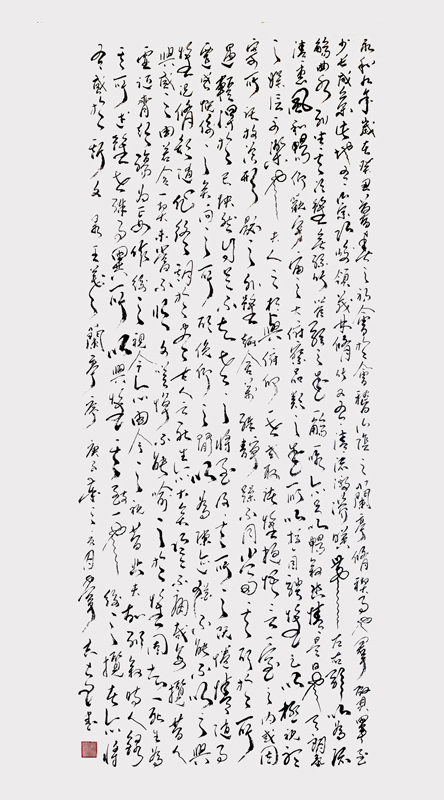 永和九年歲在癸丑暮春之初會於會稽山陰之蘭亭脩禊事也羣賢畢至
少長咸集此地有崇山峻領茂林脩竹又有清流激湍映帶左右引以為流
觴曲水列坐其次雖無絲竹管弦之盛一觴一詠亦足以暢敘幽情是日也天朗氣
清惠風和暢仰觀宇宙之大俯察品類之盛所以遊目騁懷足以極視聽
之娛信可樂也夫人之相與俯仰一世或取諸懷抱悟言一室之內或因
寄所託放浪形骸之外雖趣舍萬殊靜躁不同當其欣於所
遇暫得於己快然自足不知老之將至及其所之既倦情隨事
遷感慨係之矣向之所欣俛仰之間以為陳迹猶不能不以之興
懷況脩短隨化終期於盡古人云死生亦大矣豈不痛哉每攬昔人
興感之由若合一契未嘗不臨文嗟悼不能喻之於懷固知一死生為
虛誕齊彭殤為妄作後之視今亦由今之視昔悲夫故列敘時人錄
其所述雖世殊事異所以興懷其致一也後之攬者亦將
有感於斯文 王羲之蘭亭序 庚子 之 月 書